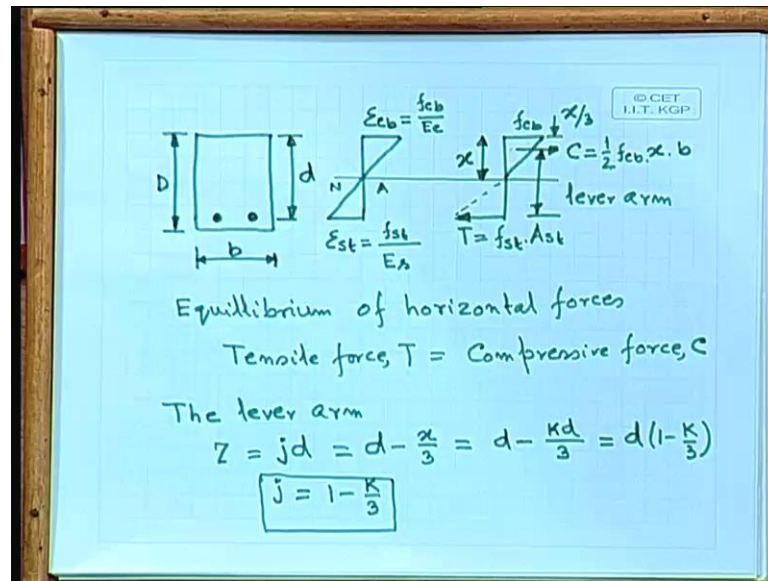 © CET
I.I.T. KGP
εcb = fcb/Ec
fcb
x/3
D
d
x
C = 1/2 fcb. x. b
N
A
lever arm
b
εst = fst/Es
T = fst. Ast
Equillibrium of horizontal forces
Tensile force, T = Compressive force, C
The lever arm
Z = jd = d - x/3 = d - Kd/3 = d(1 - K/3)
j = 1 - K/3